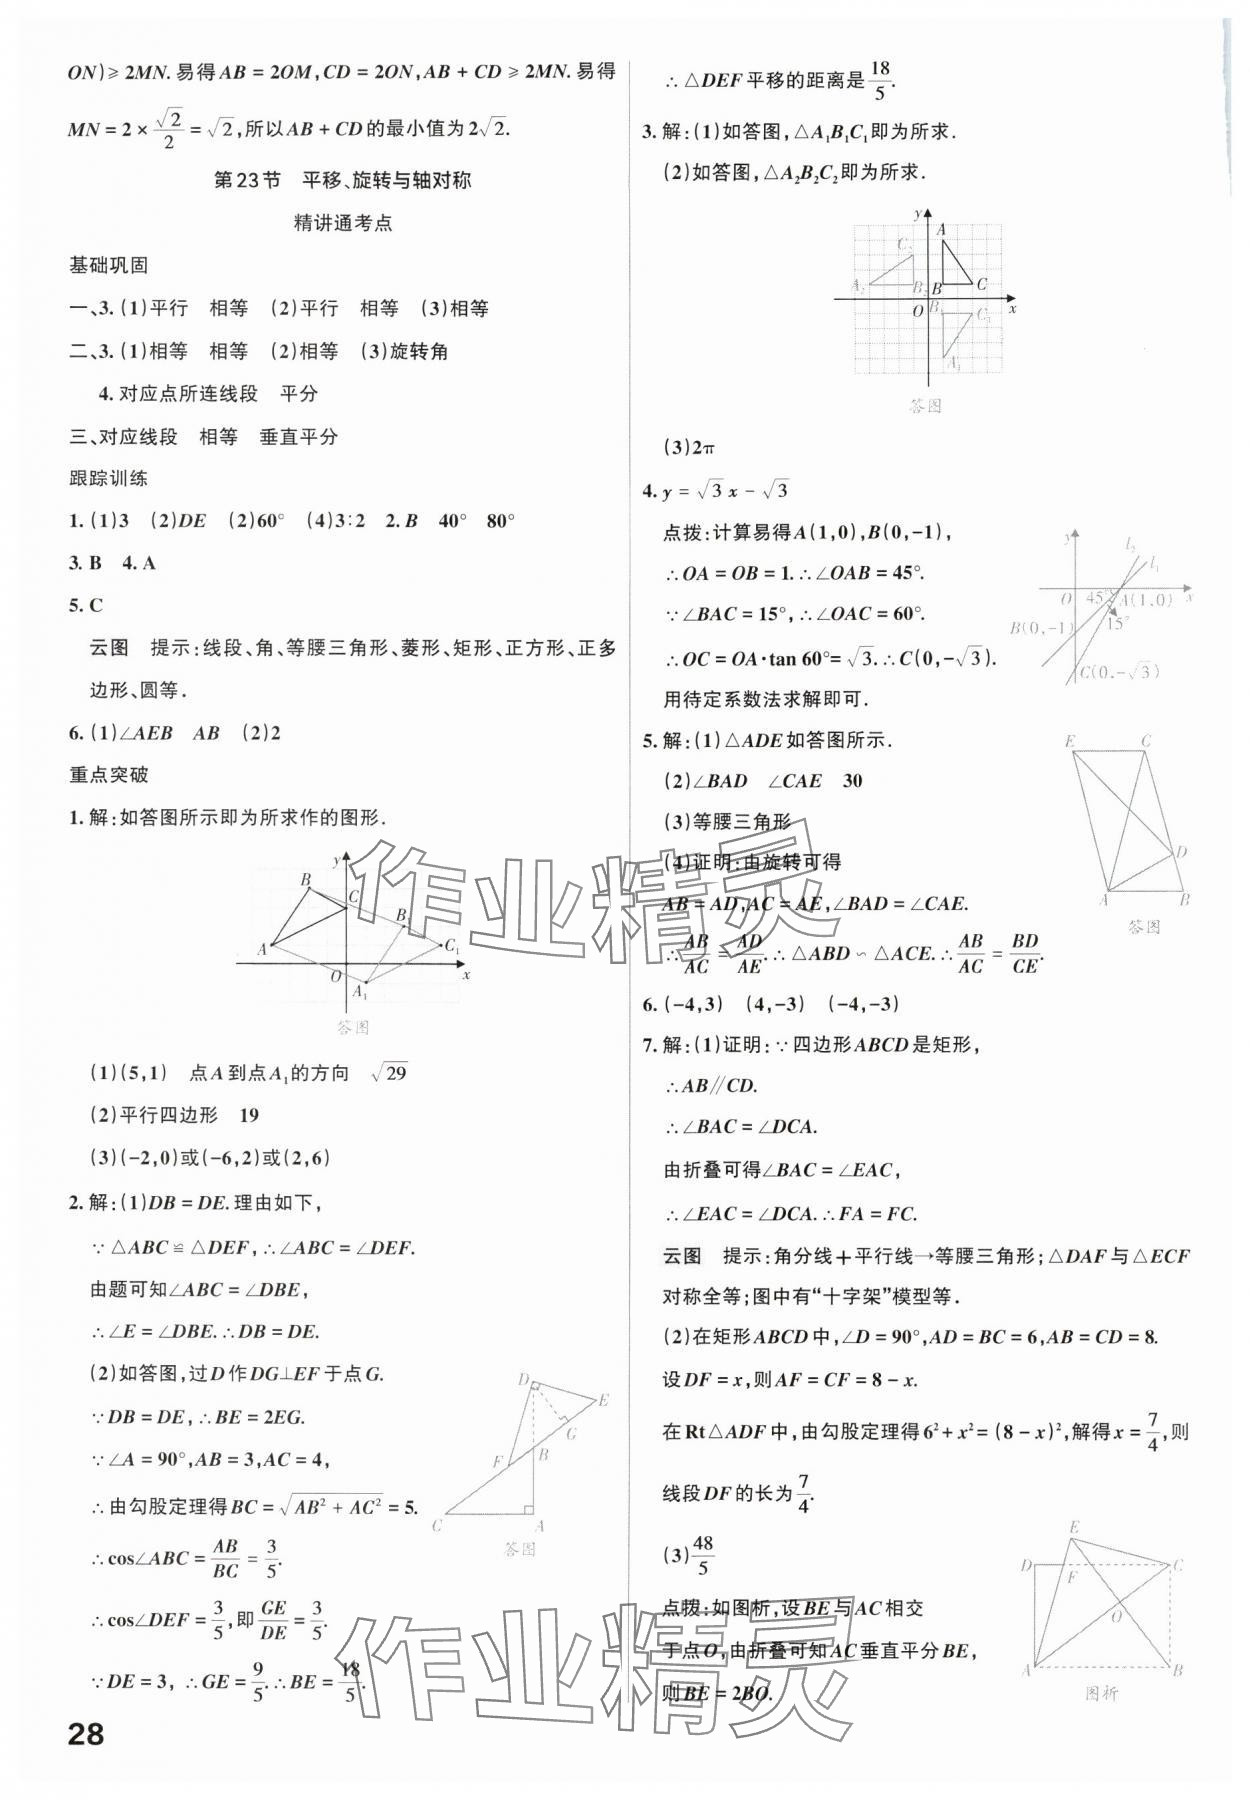 ON)≥2MN.易得AB=2OM,CD=2ON,AB+CD≥2MN.易得
MN=2×√2/2=√2,所以AB+CD的最小值为2√2.
第23节 平移、旋转与轴对称
精讲通考点
基础巩固
一、3.(1)平行 相等 (2)平行 相等 (3)相等
二、3.(1)相等 相等 (2)相等 (3)旋转角
4.对应点所连线段 平分
三、对应线段 相等 垂直平分
跟踪训练
1.(1)3 (2)DE (2)60° (4)3∶2 2.B 40° 80°
3.B 4.A
5.C
云图 提示:线段、角、等腰三角形、菱形、矩形、正方形、正多
边形、圆等.
6.(1)∠AEB AB (2)2
重点突破
1.解:如答图所示即为所求作的图形.
y
B
C
B₁
A
C₁
O
x
A₁
答图
(1)(5,1) 点A到点A₁的方向 √29
(2)平行四边形 19
(3)(-2,0)或(-6,2)或(2,6)
2.解:(1)DB=DE.理由如下,
∵△ABC≌△DEF,∴∠ABC=∠DEF.
由题可知∠ABC=∠DBE,
∴∠E=∠DBE.∴DB=DE.
(2)如答图,过D作DG⊥EF于点G.
∵DB=DE,∴BE=2EG.
∵∠A=90°,AB=3,AC=4,
∴由勾股定理得BC=√(AB²+AC²)=5.
∴cos∠ABC=AB/BC=3/5.
∴cos∠DEF=3/5,即GE/DE=3/5.
∵DE=3,∴GE=9/5.∴BE=18/5.
D
E
G
B
F
C
A
答图
28
∴△DEF平移的距离是18/5.
3.解:(1)如答图,△A₁B₁C₁即为所求.
(2)如答图,△A₂B₂C₂即为所求.
y
A
C₂
A₂
B₂
B
C
O
B₁
C₁
x
A₁
答图
(3)2π
4.y=√3x-√3
点拨:计算易得A(1,0),B(0,-1),
∴OA=OB=1.∴∠OAB=45°.
∵∠BAC=15°,∴∠OAC=60°.
∴OC=OA·tan 60°=√3.∴C(0,-√3).
用待定系数法求解即可.
y
l₂
l₁
O
45°
A(1,0)
x
B(0,-1)
15°
C(0,-√3)
5.解:(1)△ADE如答图所示.
(2)∠BAD ∠CAE 30
(3)等腰三角形
(4)证明:由旋转可得
AB=AD,AC=AE,∠BAD=∠CAE.
∴AB/AC=AD/AE.∴△ABD∽△ACE.∴AB/AC=BD/CE.
E
C
D
A
B
答图
6.(-4,3) (4,-3) (-4,-3)
7.解:(1)证明:∵四边形ABCD是矩形,
∴AB∥CD.
∴∠BAC=∠DCA.
由折叠可得∠BAC=∠EAC,
∴∠EAC=∠DCA.∴FA=FC.
云图 提示:角分线+平行线→等腰三角形;△DAF与△ECF
对称全等;图中有“十字架”模型等.
(2)在矩形ABCD中,∠D=90°,AD=BC=6,AB=CD=8.
设DF=x,则AF=CF=8-x.
在Rt△ADF中,由勾股定理得6²+x²=(8-x)²,解得x=7/4,则
线段DF的长为7/4.
(3)48/5
点拨:如图析,设BE与AC相交
于点O,由折叠可知AC垂直平分BE,
则BE=2BO.
E
D
F
C
O
A
B
图析
作业精灵
作业精灵